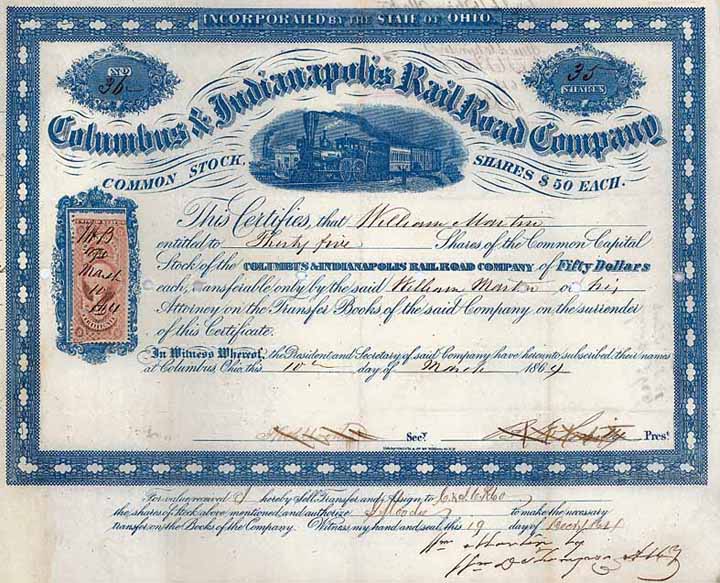 INCORPORATED BY THE STATE OF OHIO.
No 36
35 SHARES
Columbus & Indianapolis Rail Road Company
COMMON STOCK, SHARES $50 EACH.
This Certifies, that William Martin
entitled to Thirty five Shares of the Common Capital
Stock of the COLUMBUS & INDIANAPOLIS RAIL ROAD COMPANY of Fifty Dollars
each, transferable only by the said William Martin or his
Attorney on the Transfer Books of the said Company on the surrender
of this Certificate.
March
10
In Witness Whereof, the President and Secretary of said Company have hereunto subscribed their names
at Columbus, Ohio, this 10th day of March 1864
Secy. Prest.
For value received I hereby Sell, Transfer and Assign to
the shares of Stock above mentioned, and authorize to make the necessary
transfer, on the Books of the Company. Witness, my hand and seal, this 19 day of Decr 1864
Wm Martin by
Thompson Atty